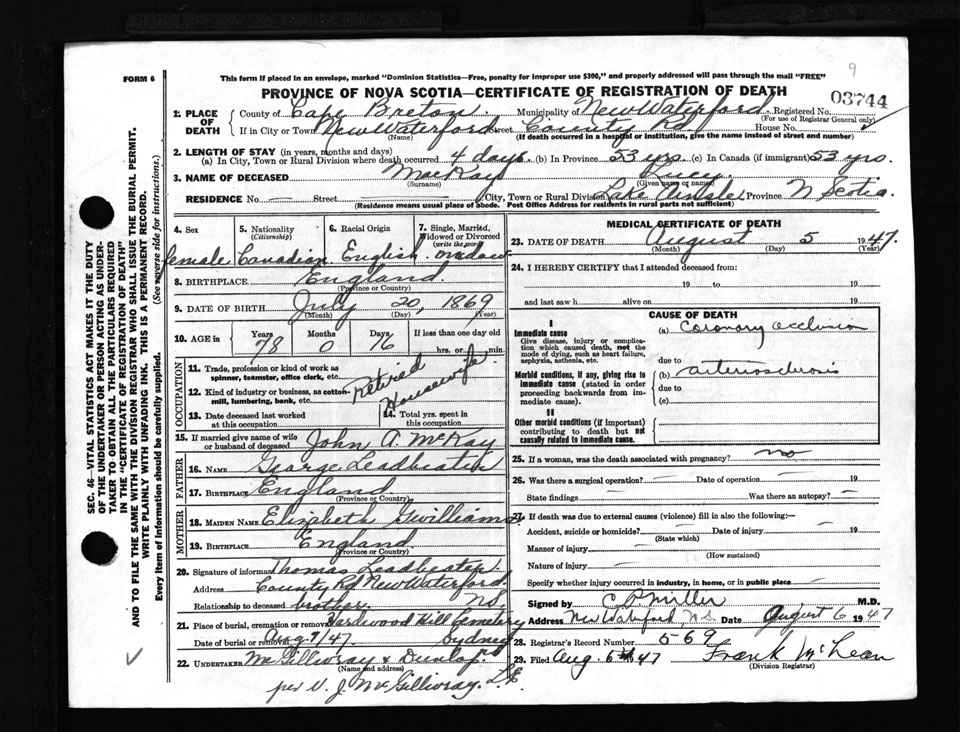 FORM 6
This form if placed in an envelope, marked "Dominion Statistics—Free, penalty for improper use $300," and properly addressed will pass through the mail "FREE"
9
PROVINCE OF NOVA SCOTIA—CERTIFICATE OF REGISTRATION OF DEATH
03744
1. PLACE OF DEATH
County of Cape Breton Municipality of New Waterford Registered No.
(For use of Registrar General only)
If in City or Town New Waterford Street County Rd House No.
(Name) (If death occurred in a hospital or institution, give the name instead of street and number)
2. LENGTH OF STAY (in years, months and days)
(a) In City, Town or Rural Division where death occurred 4 days (b) In Province 53 yrs. (c) In Canada (if immigrant) 53 yrs.
3. NAME OF DECEASED MacKay Lucy
(Surname) (Given name or names)
RESIDENCE No. — Street — City, Town or Rural Division Lake Ainslee Province N Scotia
(Residence means usual place of abode. Post Office Address for residents in rural parts not sufficient)
4. Sex
5. Nationality
(Citizenship)
6. Racial Origin
7. Single, Married, Widowed or Divorced
(write the word)
female Canadian English widow
8. BIRTHPLACE England
(Province or Country)
9. DATE OF BIRTH July 20, 1869
(Month) (Day) (Year)
10. AGE in Years Months Days If less than one day old
78 0 16 hrs. or min.
OCCUPATION
11. Trade, profession or kind of work as spinner, teamster, office clerk, etc.
Retired
12. Kind of industry or business, as cotton-mill, lumbering, bank, etc.
Housewife
13. Date deceased last worked at this occupation
14. Total yrs. spent in this occupation
15. If married give name of wife or husband of deceased John A. McKay
FATHER
16. NAME George Leadbeater
17. BIRTHPLACE England
(Province or Country)
MOTHER
18. MAIDEN NAME Elizabeth Gwilliams
19. BIRTHPLACE England
(Province or Country)
20. Signature of informant Thomas Leadbeater
Address County Rd New Waterford N.S.
Relationship to deceased brother
21. Place of burial, cremation or removal Hardwood Hill Cemetery
Date of burial or removal Aug 7/47 Sydney
22. UNDERTAKER McGillivray & Dunlop
(Name and address)
per V. J. McGillivray.
MEDICAL CERTIFICATE OF DEATH
23. DATE OF DEATH August 5 1947.
(Month) (Day) (Year)
24. I HEREBY CERTIFY that I attended deceased from:
19 to 19
and last saw h alive on 19
CAUSE OF DEATH
I
Immediate cause
Give disease, injury or complication which caused death, not the mode of dying, such as heart failure, asphyxia, asthenia, etc.
(a) Coronary occlusion
due to
Morbid conditions, if any, giving rise to immediate cause (stated in order proceeding backwards from immediate cause).
(b) arteriosclerosis
due to
(c)
II
Other morbid conditions (if important) contributing to death but not causally related to immediate cause.
25. If a woman, was the death associated with pregnancy? no
26. Was there a surgical operation? — Date of operation — 19
State findings — Was there an autopsy? —
27. If death was due to external causes (violence) fill in also the following:—
Accident, suicide or homicide? — Date of injury — 19
(State which)
Manner of injury —
(How sustained)
Nature of injury —
Specify whether injury occurred in industry, in home, or in public place —
Signed by C P Miller M.D.
Address New Waterford, N.S. Date August 6 1947
28. Registrar's Record Number 569
29. Filed Aug. 6 47 Frank McLean
(Division Registrar)
SEC. 46—VITAL STATISTICS ACT MAKES IT THE DUTY
OF THE UNDERTAKER OR PERSON ACTING AS UNDERTAKER TO OBTAIN ALL THE PARTICULARS REQUIRED
IN THE "CERTIFICATE OF REGISTRATION OF DEATH"
AND TO FILE THE SAME WITH THE DIVISION REGISTRAR WHO SHALL ISSUE THE BURIAL PERMIT.
WRITE PLAINLY WITH UNFADING INK. THIS IS A PERMANENT RECORD.
Every item of information should be carefully supplied. (See reverse side for instructions.)